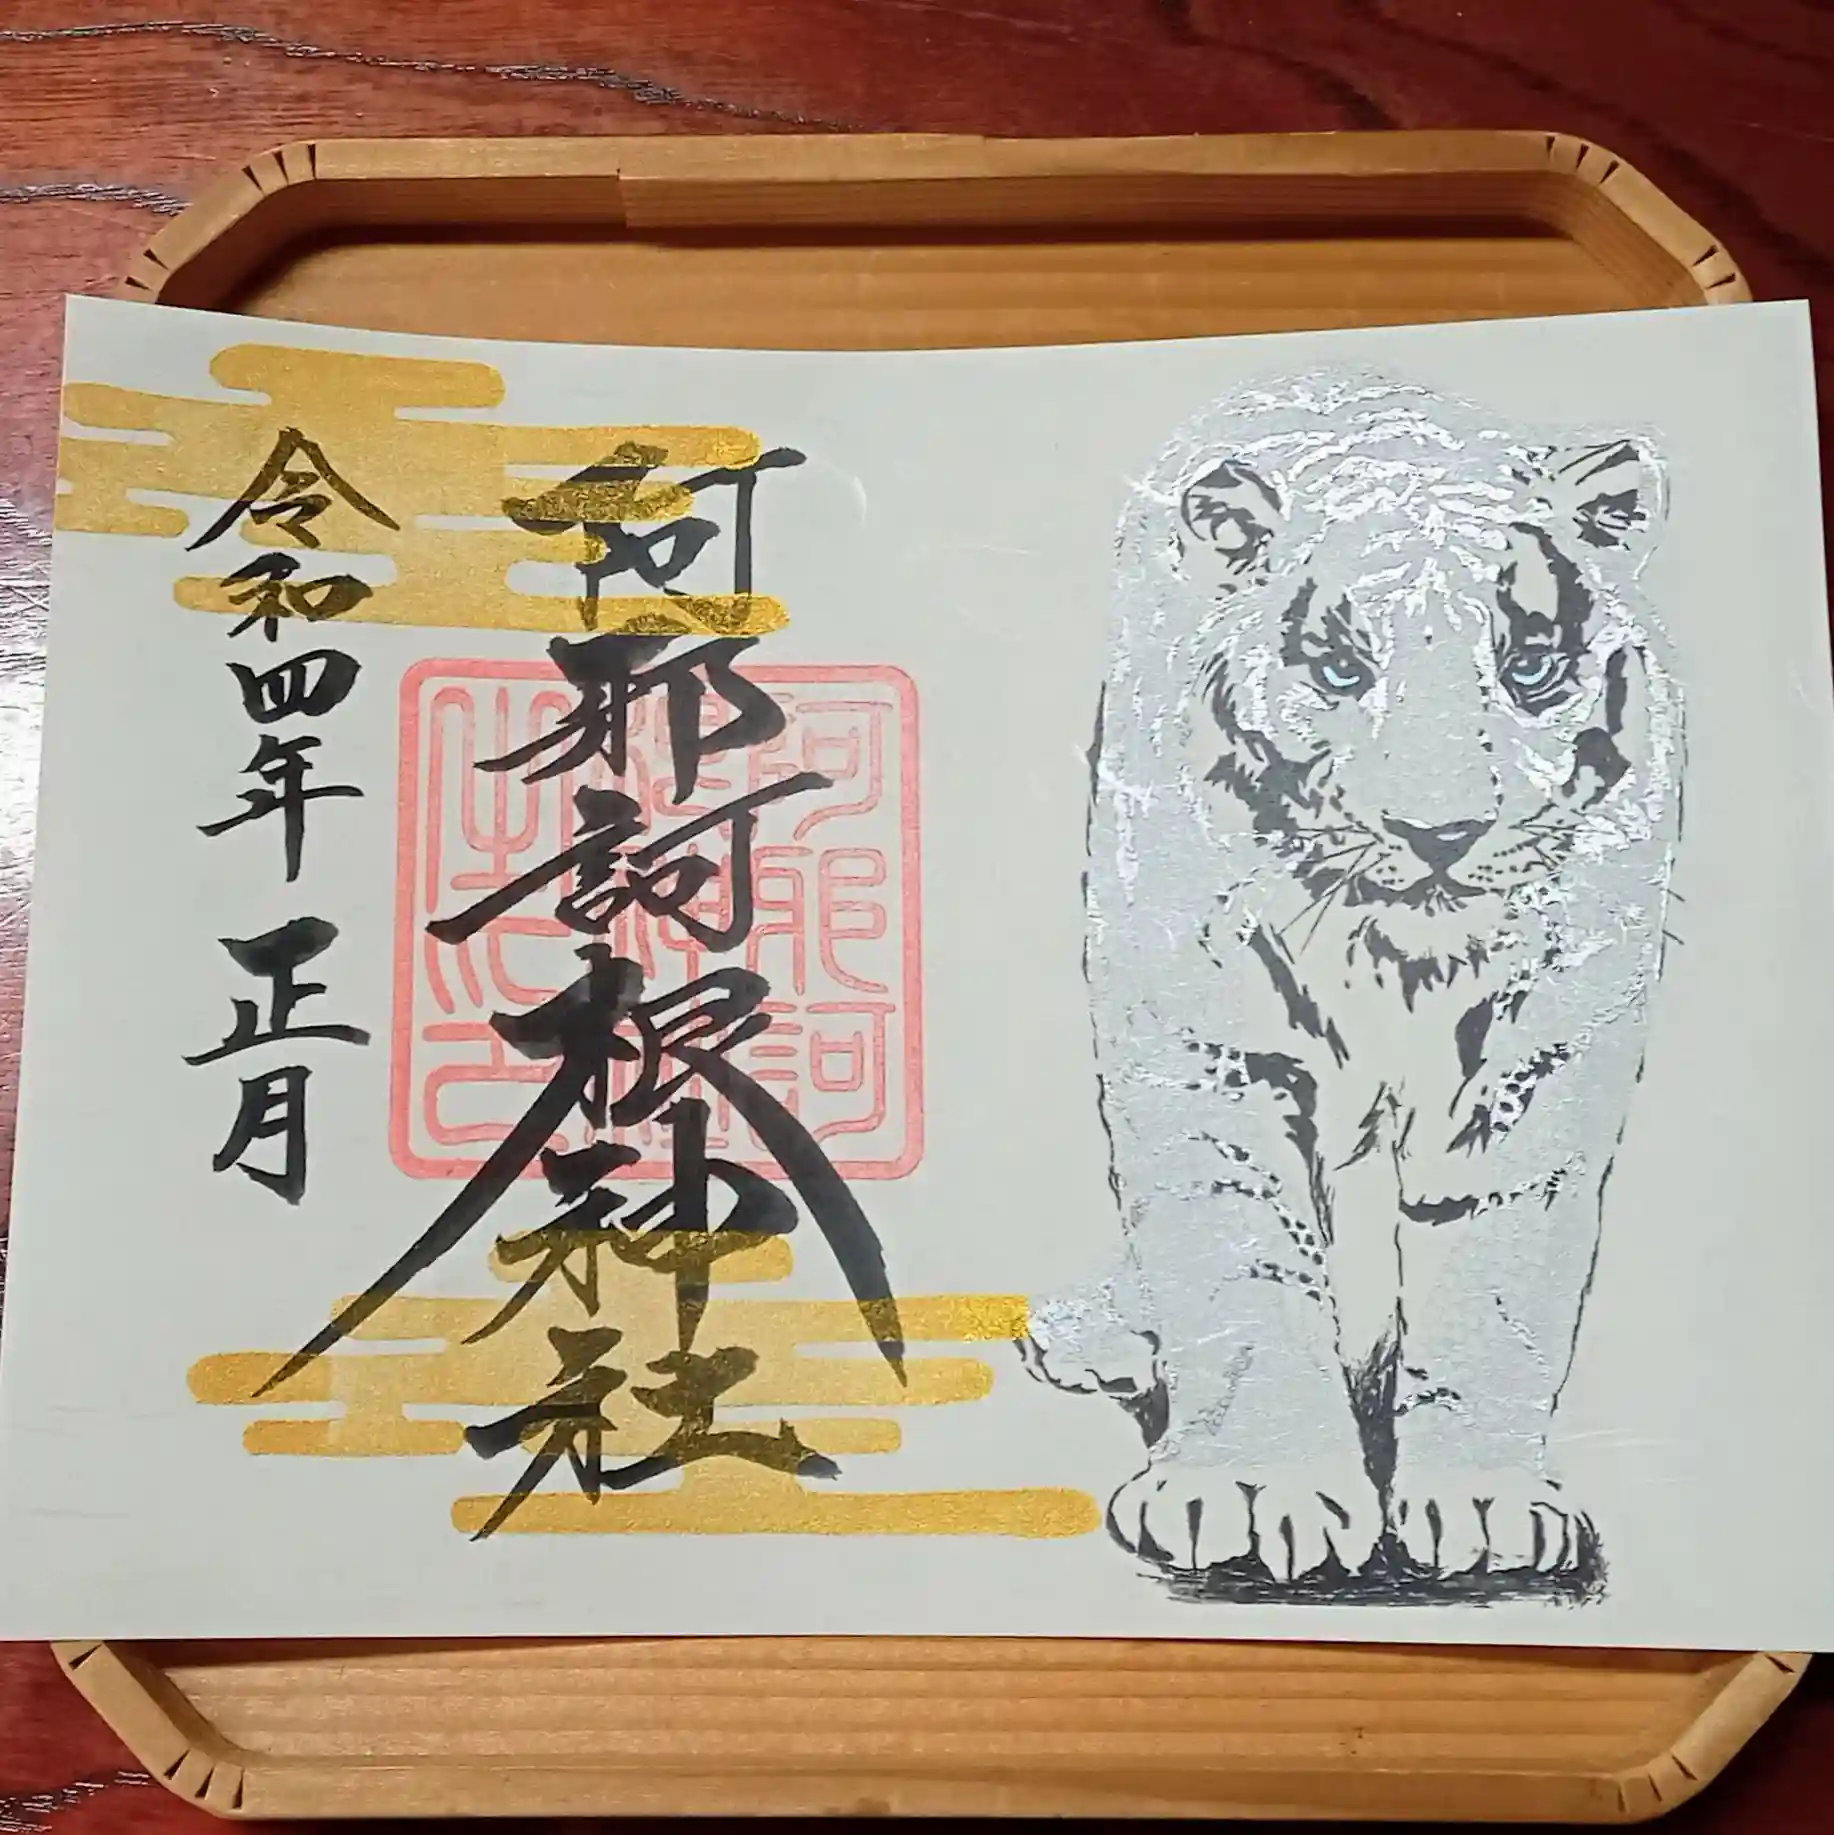 阿邪訶根神社
令和四年 正月
阿邪訶
根神社
之印